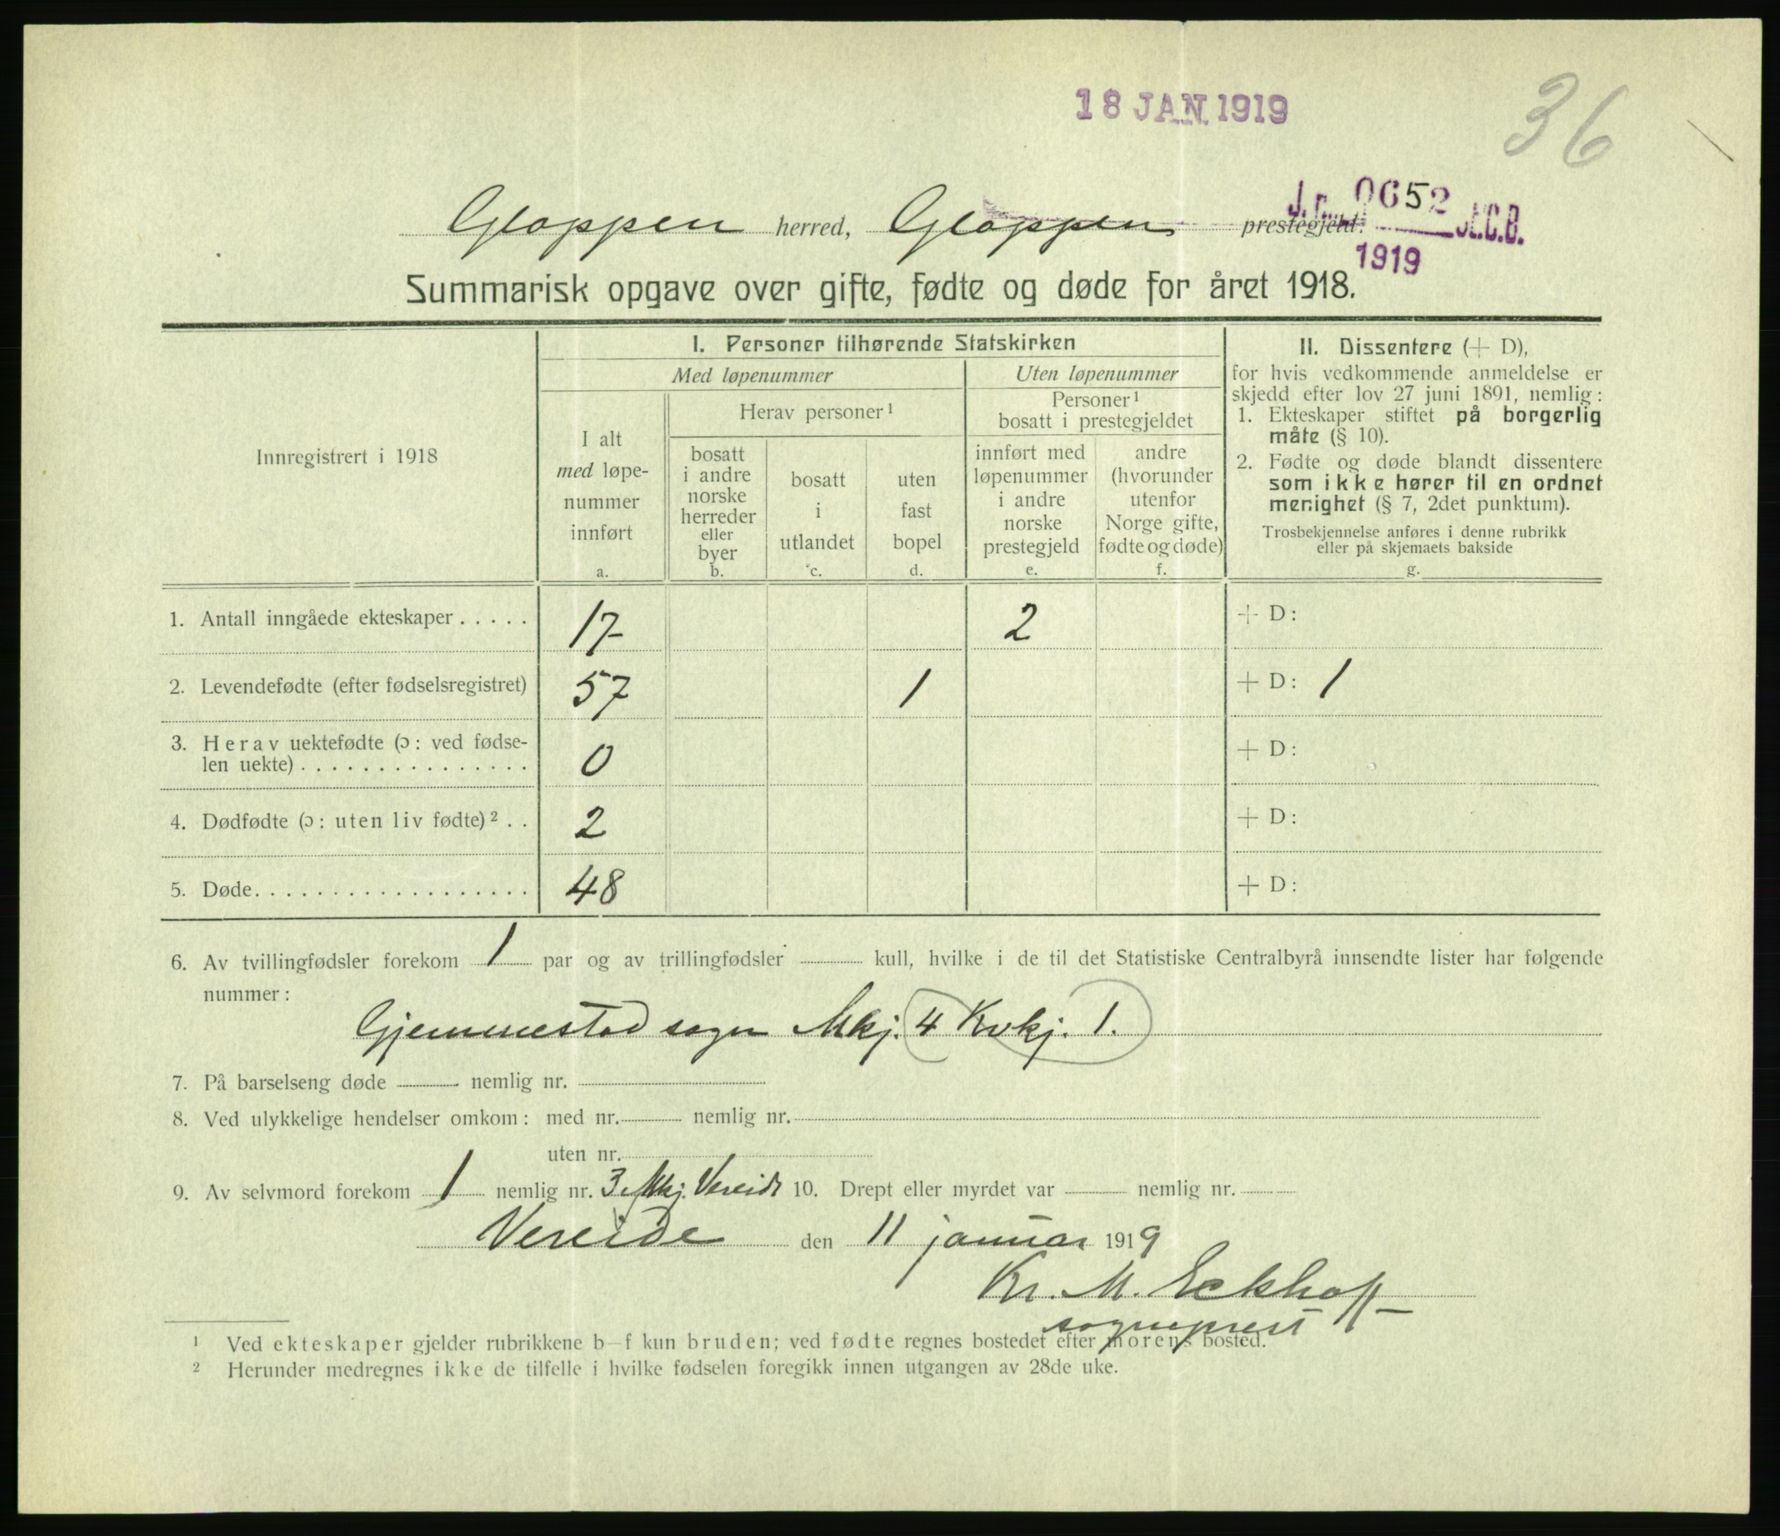 18 JAN 1919
36
J. nr. 0652 St.C.B.
1919
Gloppen herred, Gloppen prestegjeld.
Summarisk opgave over gifte, fødte og døde for året 1918.
Innregistrert i 1918
I. Personer tilhørende Statskirken
Med løpenummer
Uten løpenummer
I alt
med løpe-
nummer
innført
a.
Herav personer¹
bosatt
i andre
norske
herreder
eller
byer
b.
bosatt
i
utlandet
c.
uten
fast
bopel
d.
Personer¹
bosatt i prestegjeldet
innført med
løpenummer
i andre
norske
prestegjeld
e.
andre
(hvorunder
utenfor
Norge gifte,
fødte og døde)
f.
II. Dissentere (+ D),
for hvis vedkommende anmeldelse er
skjedd efter lov 27 juni 1891, nemlig:
1. Ekteskaper stiftet på borgerlig
måte (§ 10).
2. Fødte og døde blandt dissentere
som ikke hører til en ordnet
menighet (§ 7, 2det punktum).
Trosbekjennelse anføres i denne rubrikk
eller på skjemaets bakside
g.
1. Antall inngåede ekteskaper ..... 17 2 + D:
2. Levendefødte (efter fødselsregistret) 57 1 + D: 1
3. Herav uektefødte (ɔ: ved fødse-
len uekte) ............... 0 + D:
4. Dødfødte (ɔ: uten liv fødte)² .. 2 + D:
5. Døde................... 48 + D:
6. Av tvillingfødsler forekom 1 par og av trillingfødsler kull, hvilke i de til det Statistiske Centralbyrå innsendte lister har følgende
nummer:
Gjemmestad sogn Mkj. 4 Kvkj. 1.
7. På barselseng døde nemlig nr.
8. Ved ulykkelige hendelser omkom: med nr. nemlig nr.
uten nr.
9. Av selvmord forekom 1 nemlig nr. 3 Mkj. Vereide 10. Drept eller myrdet var nemlig nr.
Vereide den 11 januar 1919
Kr. M. Eckhoff
sogneprest
¹ Ved ekteskaper gjelder rubrikkene b–f kun bruden; ved fødte regnes bostedet efter morens bosted.
² Herunder medregnes ikke de tilfelle i hvilke fødselen foregikk innen utgangen av 28de uke.